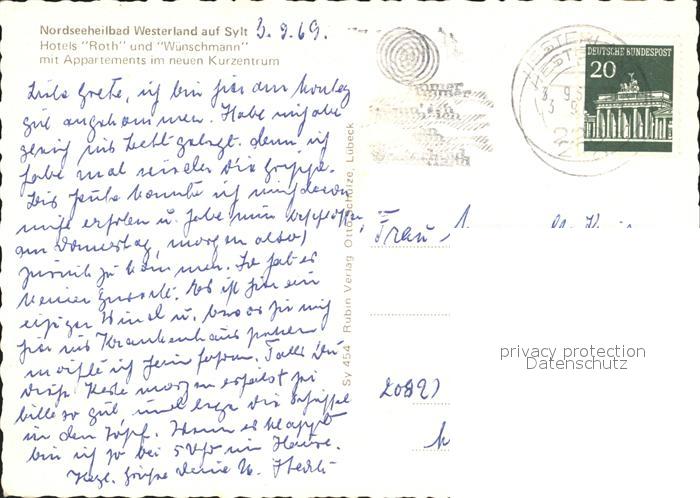 Nordseeheilbad Westerland auf Sylt
3.9.69.
Hotels "Roth" und "Wünschmann"
mit Appartements im neuen Kurzentrum
Liebe Grete, ich bin hier am Montag
gut angekommen. Habe mich aber
gleich ins Bett gelegt, denn ich
habe mal wieder die Grippe.
Bis heute konnte ich mich davon
nicht erholen u. habe nun beschlossen,
am Donnerstag, (morgen also)
zurück zu kommen. Es hat so
keinen Zweck. Es ist hier ein
eisiger Wind u. bevor sie mich
hier ins Krankenhaus
möchte ich heim fahren. Falls Du
diese Karte morgen erhältst sei
bitte so gut und lege die
in den Topf. Wenn es klappt
bin ich so bei 5 Uhr im Hause.
Herzl. Grüße Deine
Sy 454 Rubin Verlag Otto Schulze, Lübeck
DEUTSCHE BUNDESPOST
20
Frau
privacy protection
Datenschutz